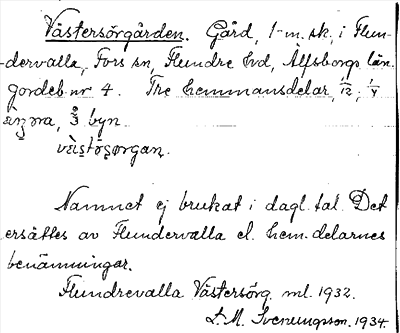 Västersörgården. Gård, 1-m. sk, i Flun-
dervalla, Fors sn, Flundre hd, Älfsborgs län.
jordeb nr 4. Tre hemmansdelar, 1/12, 1/4
byn.
Namnet ej brukat i dagl. tal. Det
ersättes av Flundervalla el. hem.delarnes
benämningar.
Flundrevalla Västersörg. ml. 1932.
L. M. Svenungsson. 1934.